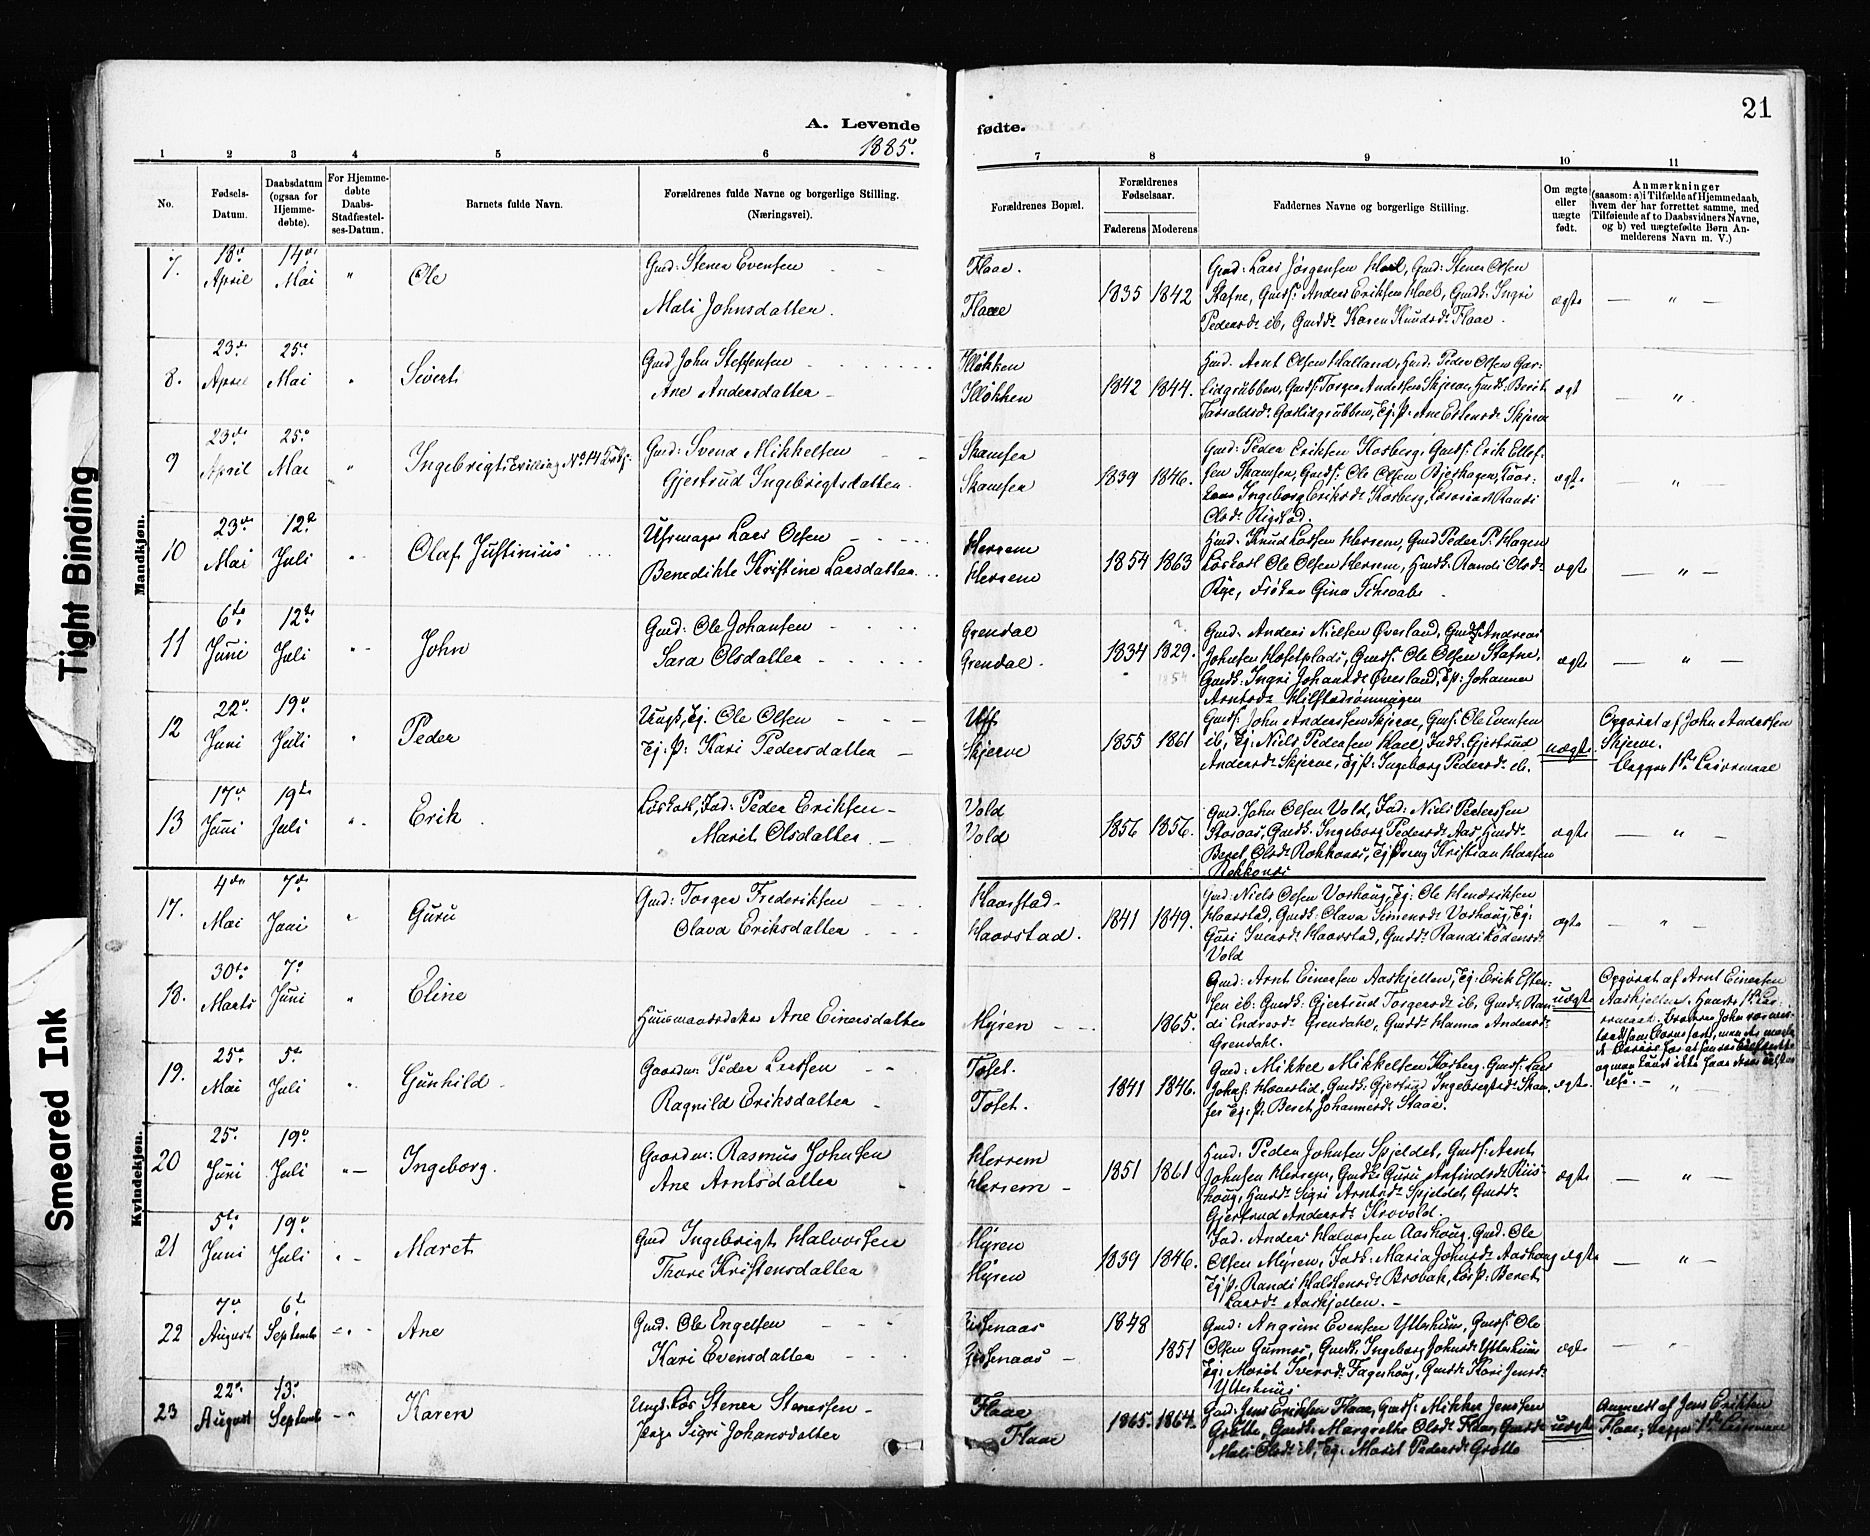 21
A. Levende
fødte.
1885.
1 2 3 4 5 6
7 8 9 10 11
No.
Fødsels-
Datum.
Daabsdatum
(ogsaa for
Hjemme-
døbte).
For Hjemme-
døbte
Daabs-
Stadfæstel-
ses-Datum.
Barnets fulde Navn.
Forældrenes fulde Navne og borgerlige Stilling.
(Næringsvei).
Forældrenes Bopæl.
Forældrenes
Fødselsaar.
Faderens Moderens
Faddernes Navne og borgerlige Stilling.
Om ægte
eller
uægte
født.
Anmærkninger
(saasom: a) i Tilfælde af Hjemmedaab,
hvem der har forrettet samme, med
Tilføiende af to Daabsvidners Navne,
og b) ved uægtefødte Børn An-
melderens Navn m. V.)
Tight Binding
Smeared Ink
Mandkjøn.
Kvindekjøn.
7. 18de April 14de Mai " Ole
Gmd: Stener Evensen
Mali Johnsdatter.
Flaae.
Flaae
1835 1842
Gmd: Lars Jørgensen Hoel, Gmd: Stener Olsen
Stafne, Gmds. Anders Eriksen Hoel, Gmdk: Ingri
Pedersd. ib, Gmdd. Karen Knudsd. Flaae.
ægte — " —
8. 23de April 25de Mai " Sivert
Gmd John Steffensen
Ane Andersdatter
Kløkken
Kløkken
1842 1844.
Hmd. Arnt Olsen Halland, Hmd. Peder Olsen Gar-
lidgrubben, Gmds. Torger Andersen Skjerve, Hmdk. Berit
ægt — " .
9 23de April 25de Mai " Ingebrigt Tvilling No 14
Gmd: Svend Mikkelsen
Gjertrud Ingebrigtsdatter.
Skamfer
Skamfer
1839 1846.
Gmd: Peder Eriksen Kosberg, Gmds. Erik Ellef-
sen Skamfer, Gmds. Ole Olsen
Ingeborg Eriksd. Kosberg, Randi
Olsd. Rigstad.
ægte — " —
10 23de Mai 12te Juli " Olaf Justinius
Uhrmager Lars Olsen
Benedikte Kristine Larsdatter
Herrem
Herrem
1854 1863
Hmd. Knud Larsen Herrem, Gmd Peder P. Hagen
Løskarl Ole Olsen Herrem, Hmdk. Randi Olsd.
Rye, Frøken Gina Schwabe.
ægte — " —
11 6te Juni 12te Juli " John
Gmd: Ole Johansen
Sara Olsdatter
Grendal
Grendal.
1834 1829.
Gmd. Anders Nielsen Øverland, Gmds. Andreas
Johnsen Hosetplads, Gmds. Ole Olsen Stafne,
Gmdk: Ingri Johansd. Øverland, Ejp: Johanna
Arntsd.
ægte — " —
12 22de Juni 19de Juli " Peder
Ungk, Ej. Ole Olsen
Ej. p. Kari Pedersdatter
Uf
Skjerve
1855 1861
Gmds. John Andersen Skjerve, Gmds. Ole Evensen
ib, Ej. Niels Pedersen Hoel, Indk. Gjertrud
Andersd. Skjerve, Ejp: Ingeborg Pedersd. ib.
uægte
Opgivet af John Andersen
Skjerve.
Begges 1ste Leiermaal
13 17de Juni 19de Juli " Erik
Løskarl, Ind: Peder Eriksen
Marit Olsdatter
Vold
Vold
1856 1856.
Gmd. John Olsen Vold, Ind: Niels Pedersen
Storaas, Gmdk. Ingeborg Pedersd. Aas, Hmdd.
Beret Olsd. Rokkones, Ejdreng Kristian Hansen
Rokkones
ægte — " —
17. 4de Mai 7de Juni " Guru
Gmd: Torger Frederiksen
Olava Eriksdatter
Haarstad.
Haarstad.
1841 1849.
Gmd: Niels Olsen Vorhaug, Ej: Ole Hendriksen
Haarstad, Gmdk: Olava Simensd. Vorhaug, Ej:
Guri Ivarsd. Haarstad, Gmdd. Randi
Vold
ægte — " —
18. 30te Marts 7de Juni " Eline
Huusmandsdatter Ane Einersdatter
Myren
1865.
Gmd: Arnt Einersen Aaskjellen, Ej: Erik
ib: Gmdk: Gjertrud Torgersd. ib, Gmdd. Ran-
di Endresd. Grendahl, Gmdd. Hanna Andersd.
Grendahl.
uægte
Opgivet af Arnt Einersen
Aaskjellen.
19. 25de Mai 5te Juli " Gunhild
Gaardm: Peder Larssen
Ragnild Eriksdatter
Toset.
Toset.
1841 1846.
Gmd: Mikkel Mikkelsen Kosberg, Gmds. Lars
Johns. Haarslid, Gmdk. Gjertrud Ingebrigtsd. Skam-
fer Ej: p. Beret Johannesd. Staae.
ægte — " —
20 25de Juni 19de Juli " Ingeborg.
Gaardm: Rasmus Johnsen
Ane Arntsdatter
Herrem
Herrem
1851 1861
Hmd: Peder Johnsen Spjeldet, Gmds. Arnt
Johnsen Herrem, Gmdk: Guru Arfindsd.
Hmdd: Sigri Arntsd. Spjeldet, Gmdd.
Gjertrud Andersd. Krovold.
ægte — " —
21 5te Juni 19de Juli " Maret
Gmd Ingebrigt Halvorsen
Thore Kristensdatter
Myren
Myren
1839 1846.
Ind. Anders Halvorsen Aashaug, Gmd. Ole
Olsen Myren, Indk: Maria Johnsd. Aashaug
Ejp: Randi Halstensd. Brobak, Løsp: Beret
Larsd. Aaskjellen.
ægte — " —
22 7de August 6te Septemb " Ane
Gmd. Ole Engelsen
Kari Evensdatter
1848 1851
Gmd: Angrim Evensen Ytterhuus, Gmds. Ole
Olsen Gunnes, Gmdk. Ingeborg Johnsd. Ytterhuus
Ej: Marit Iversd. Fagerhaug, Gmdd. Kari Jensd.
Ytterhuus
ægte — " —
23 22de August 13de Septemb " Karen
Ungk. Løs Stener Stenersen
Pige Sigri Johansdatter
Flaae
Flaae
1865. 1864.
Ind: Jens Eriksen Flaae, Gmds. Mikkel Jenssen
Grøtte, Gmdk. Margrethe Olsd. Flaae, Gmdd.
Mali Olsd. ib, Ej: Marit Pedersd. Grøtte
uægte
Anmeldt af Jens Eriksen
Flaae, begges 1ste Leiermaal